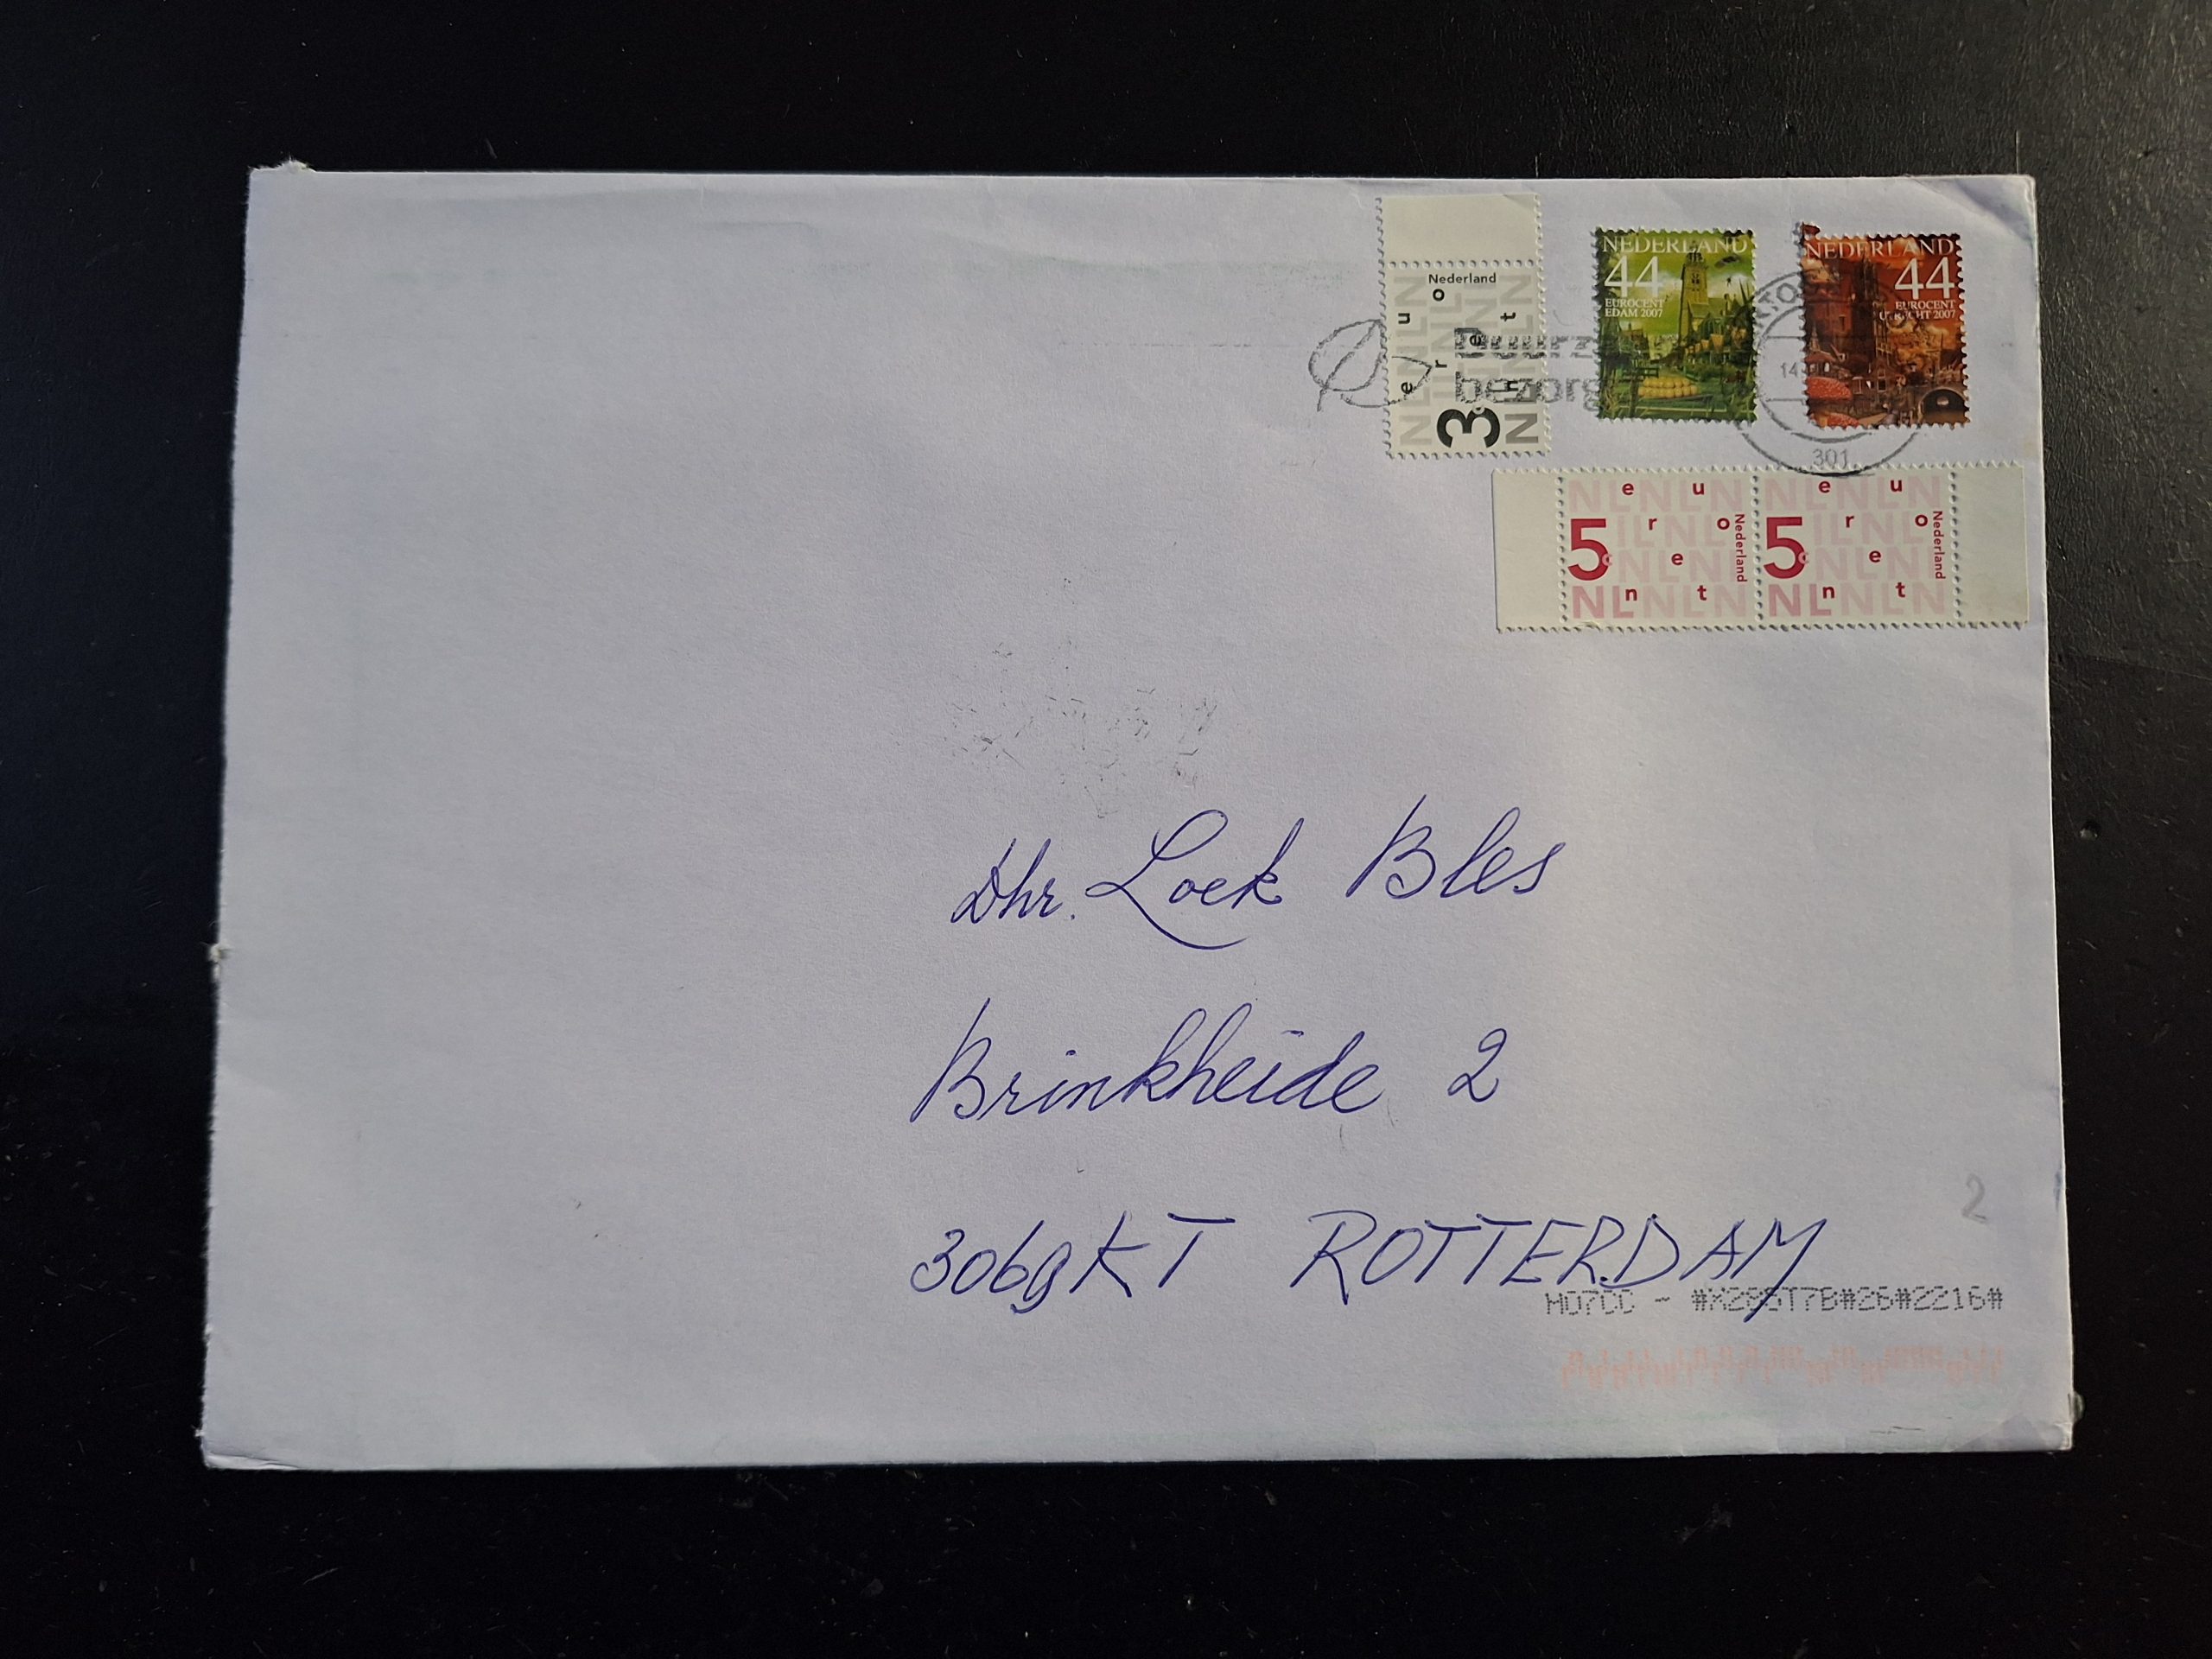 Nederland
3 euro cent
NEDERLAND
44
EUROCENT
EDAM 2007
NEDERLAND
44
EUROCENT
UTRECHT 2007
bezorgd
14
301
5 euro cent
Nederland
NLNLN
5 euro cent
Nederland
NLNLN
Dhr. Loek Bles
Brinkheide 2
3069KT ROTTERDAM
2